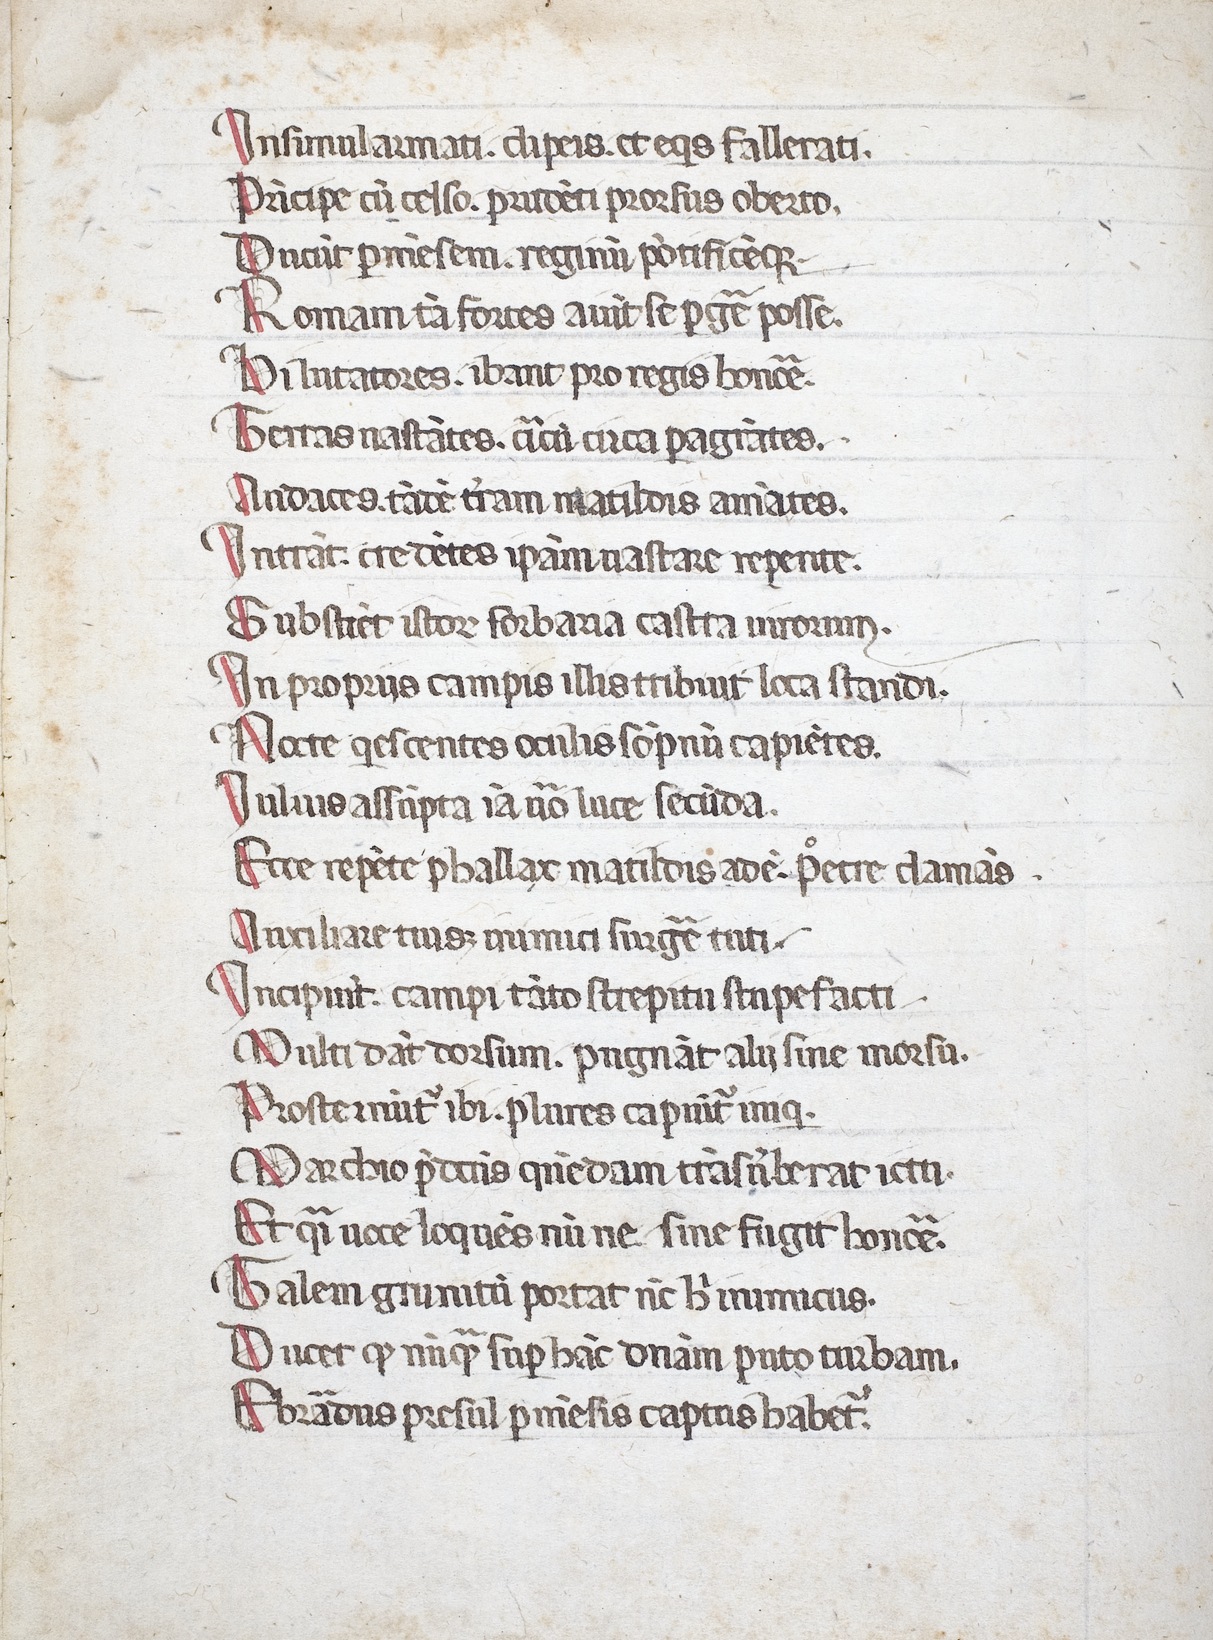 Insimul armati. clipeis. et eq̄s fallerati.
Prīcipe cū celso. prudēti prorsus oberto.
Ducūt p̄mēsem. reginū pōtificēq̄.
Romam tā fortes aiūt se p̄gē posse.
Dilutatores. ibant pro regis honōe.
Terras uastātes. cūcū circa pagrātes.
Audaces. tādē tr̄am matildis amātes.
Intrāt. credētes ip̄am uastare repente.
Substiēt istor forbaria castra uirorum.
In propriis campis illis tribiuit loca standi.
Nocte qescentes oculis sōpnū capiētes.
Iulius assūpta iā u̅o luce secūda.
Ecce repēte phallax matildis adē. p̊etre clamās.
Auxiliare tuis; inimici surgē tuti.
Incipiūt. campi tāto strepitu stupefacti.
Multi dāt dorsum. pugnāt alij sine morsu.
Prosternūt᷑ ibi. plures capiūt᷑ iniq.
Marchio p̄dctis quedam trāsūberat ictu.
Et q̄i uoce loquēs nū ne sine fugit honōe.
Talem grunitū portat nc̄ h̄ inimicus.
Ducet ꝙ nūq̄ sup hāc dnām puto turbam.
Ebrādus presul pmēsis captus habet᷑.